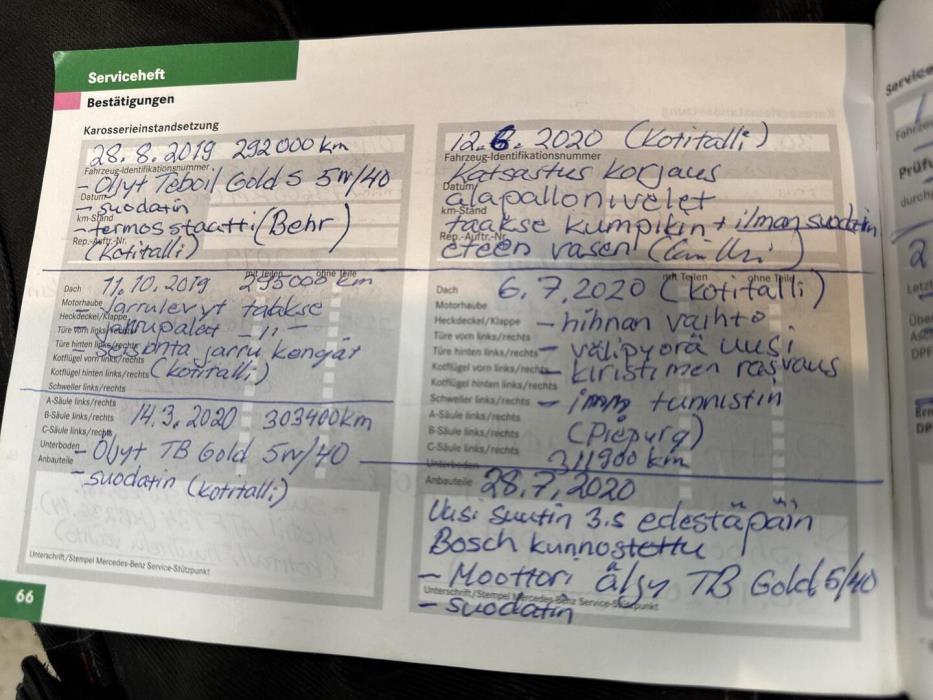 Serviceheft
Bestätigungen
Karosserieinstandsetzung
28.8.2019 292000 km
Fahrzeug-Identifikationsnummer
- Öljyt Teboil Gold S 5W/40
Datum
- suodatin
km-Stand
- termostaatti (Behr)
Rep.-Auftr.-Nr.
(kotitalli)
mit Teilen ohne Teile
Dach 11.10.2019 295000 km
Motorhaube - Jarrulevyt taakse
Heckdeckel/Klappe
Türe vorn links/rechts - Jarrupalat -,,-
Türe hinten links/rechts - seisonta jarru kengät
Kotflügel vorn links/rechts
Kotflügel hinten links/rechts (kotitalli)
Schweller links/rechts
A-Säule links/rechts
B-Säule links/rechts 14.3.2020 303400km
C-Säule links/rechts
Unterboden - Öljyt TB Gold 5W/40
Anbauteile
- suodatin (kotitalli)
Unterschrift/Stempel Mercedes-Benz Service-Stützpunkt
66
12.6.2020 (Kotitalli)
Fahrzeug-Identifikationsnummer
Katsastus korjaus
Datum
alapallonivelet
km-Stand
taakse kumpikin + ilman suodatin
Rep.-Auftr.-Nr.
eteen vasen
mit Teilen ohne Teile
Dach 6.7.2020 (kotitalli)
Motorhaube
Heckdeckel/Klappe - hihnan vaihto
Türe vorn links/rechts
Türe hinten links/rechts - välipyörä uusi
Kotflügel vorn links/rechts - kiristimen rasvaus
Kotflügel hinten links/rechts
Schweller links/rechts - imm tunnistin
A-Säule links/rechts
B-Säule links/rechts (Piepurg)
C-Säule links/rechts
Unterboden 311900 km
Anbauteile 28.7.2020
Uusi suutin 3.s edestäpäin
Bosch kunnostettu
- Moottori öljy TB Gold 5/40
Unterschrift/Stempel Mercedes-Benz Service-Stützpunkt
- suodatin